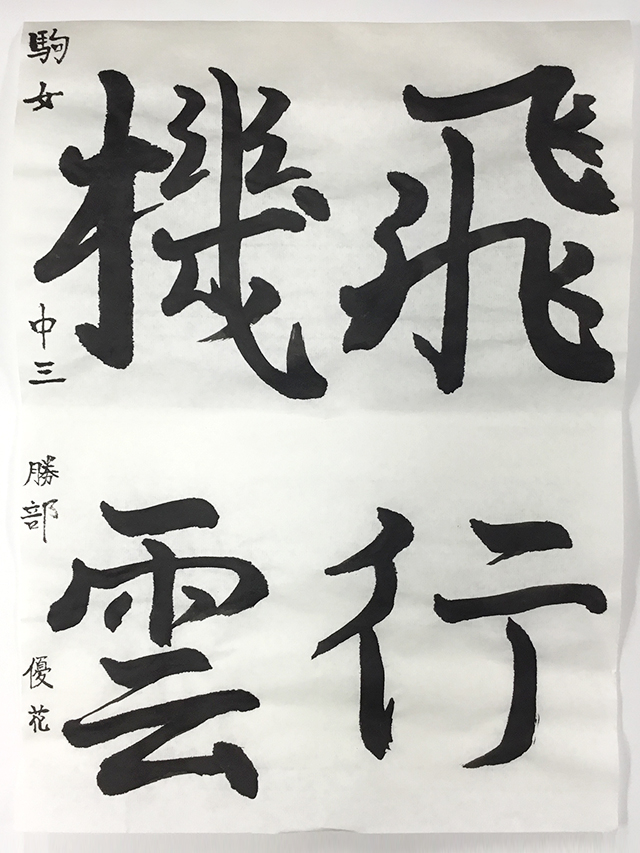 飛行
機雲
駒女 中三 勝部 優花